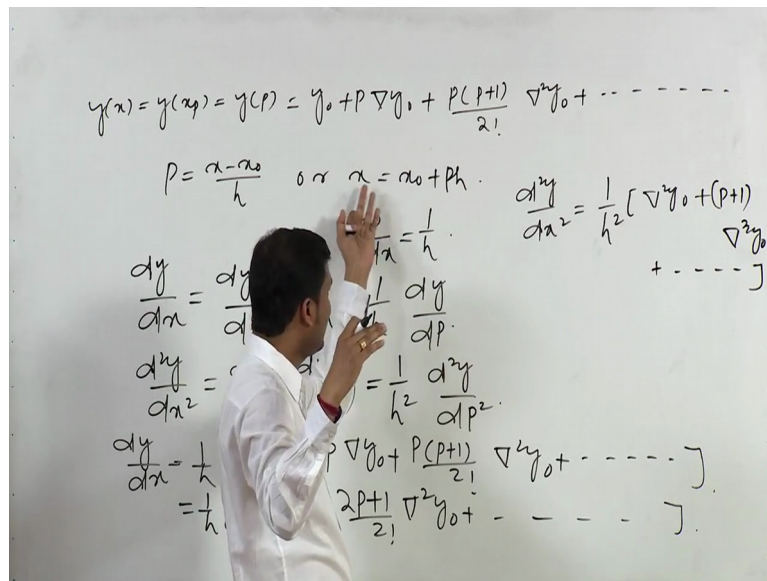 y(x) = y(xₚ) = y(p) = y₀ + p ∇y₀ + p(p+1)/2! ∇²y₀ + - - - - - - - -
p = x-x₀/h or x = x₀ + ph.
dx = 1/h.
d²y/dx² = 1/h² [ ∇²y₀ + (p+1)
∇³y₀
+ - - - - ]
dy/dx = dy/d dy/dp.
d²y/dx² = = 1/h² d²y/dp².
dy/dx = 1/h p ∇y₀ + p(p+1)/2! ∇²y₀ + - - - - - ].
= 1/h 2p+1/2! ∇²y₀ + - - - - ].